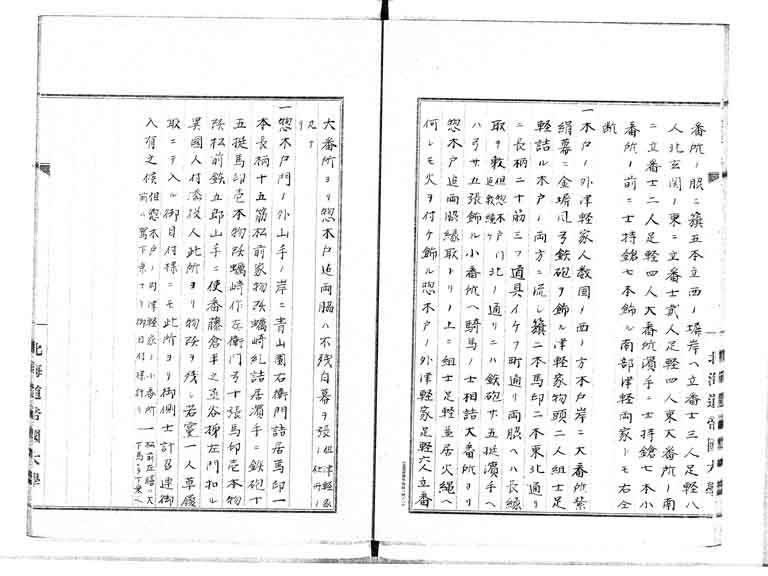 番所ノ脇ニ籏五本立西ノ塀岸ヘ立番士三人足軽八
人北玄関ノ東ニ立番士貳人足軽四人東大番所ノ南
ニ立番士二人足軽四人大番所濱手ニ士持鎗七本小
番所ノ前ニ士持鎗七本飾ル南部津軽両家トモ右仝
断
一木戸ノ外津軽家人数圍ノ西ノ方木戸岸ニ大番所紫
絹幕ニ金塀風弓鉄砲ヲ飾ル津軽家物頭二人組士足
軽詰ル木戸ノ両方ニ流シ籏二本馬印二本東北通リ
ニ長柄二十筋三ツ道具イケフ町通リ両脇ヘハ長縁
取ヲ敷但惣木戸門北ノ通リニハ鉄砲廿五挺濱手ヘ
ハ弓廿五張飾ル小番所ヘ騎馬ノ士相詰大番所ヨリ
惣木戸迠両脇縁取トリノ上ニ組士足軽並居火縄ヘ
何レモ火ヲ付ケ飾ル惣木戸ノ外津軽家足軽六人立番
大番所ヨリ惣木戸迠両脇ハ不残白幕ヲ張ル但津軽家
一惣木戸門ノ外山手ノ岸ニ青山園右衛門詰居馬印一
本長柄十五筋松前家物頭蠣崎糺詰居濱手ニ鉄砲十
五挺馬印壱本物頭蠣崎作左衛門弓十張馬印壱本物
頭松前鉄五郎山手ニ使番藤倉半之丞谷梯左門扣ル
異國人付添役人此所ヨリ物頭ヲ残シ若黨一人草履
取ニテ入ル御目付様ニモ此所ヨリ御側士計召連御
入有之候但惣木戸ノ内津軽家ノ小番所
北海道帝國大學
北海道帝國大學